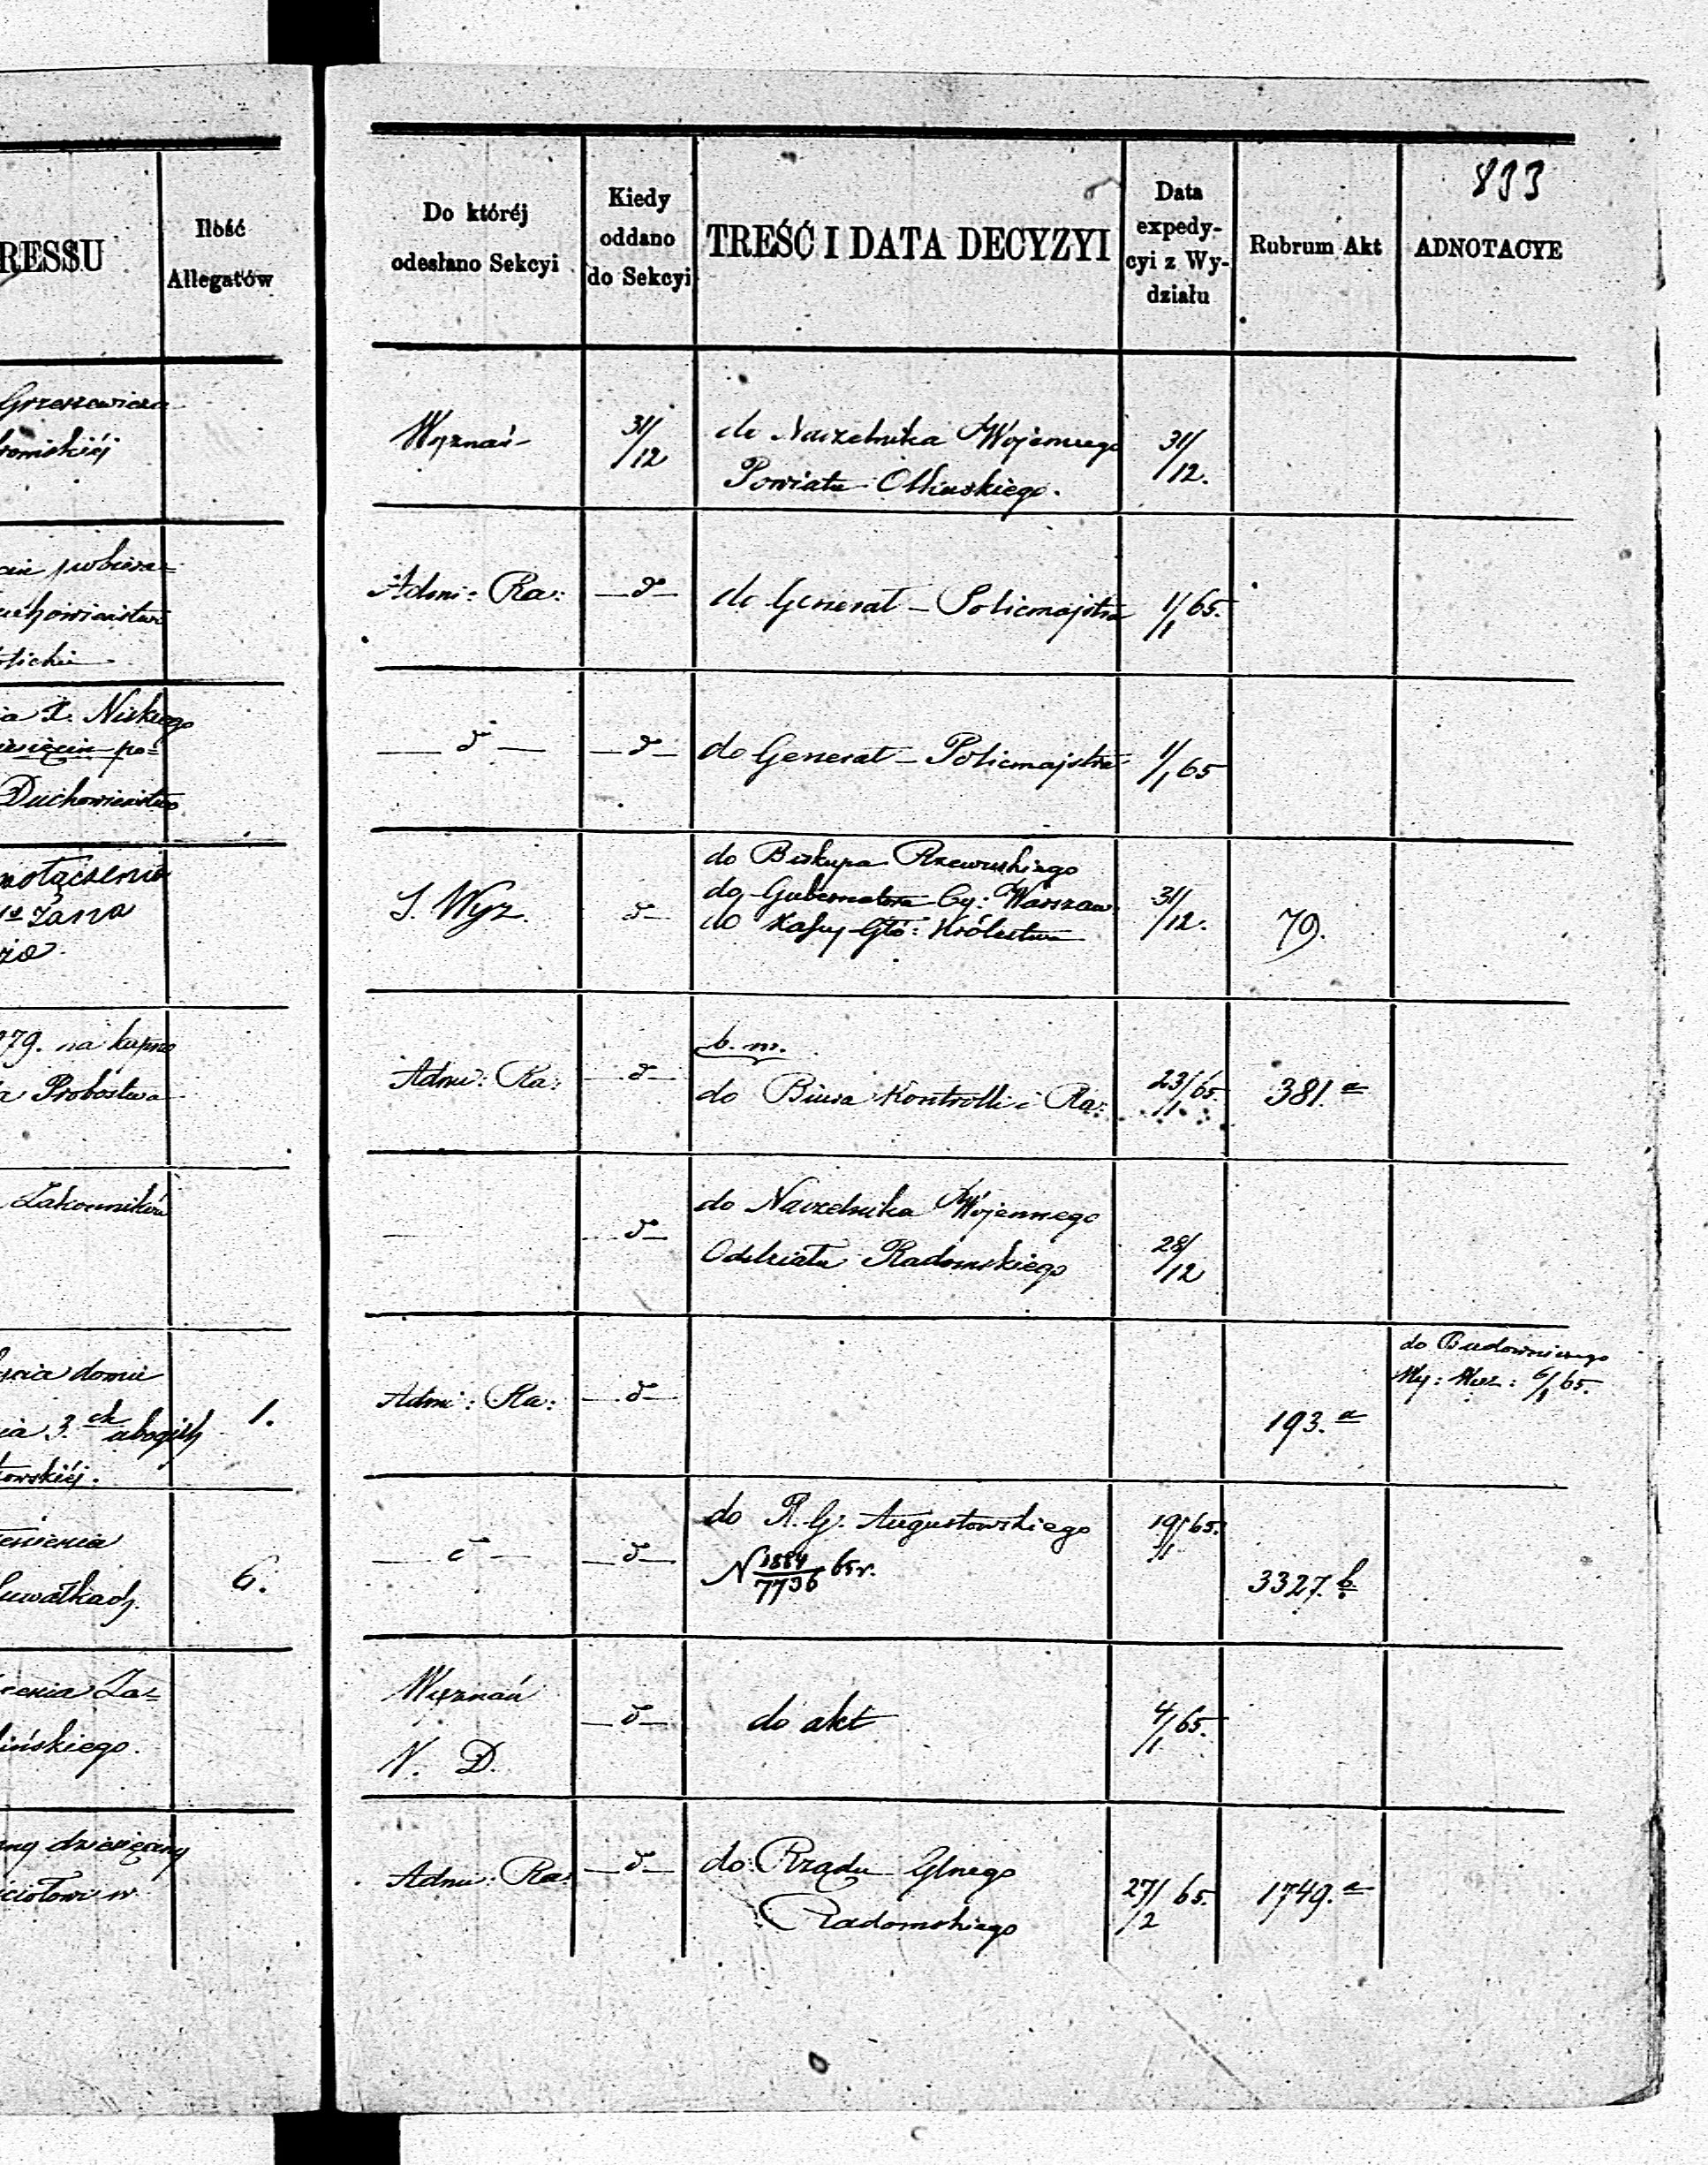 833
RESSU
Ilość
Allegatów
Do któréj
odesłano Sekcyi
Kiedy
oddano
do Sekcyi
TREŚĆ I DATA DECYZYI
Data
expedy-
cyi z Wy-
działu
Rubrum Akt
ADNOTACYE
Grzeszewicza
Wyznań
31/12
do Naczelnika Wojennego
Powiatu Olkuskiego.
31/12.
pobiera=
Adm: Ra:
— d —
do Generał-Policmajstra
1/1 65.
ia X. Niskiego
po=
Duchowieństwo
— d —
— d —
do General-Policmajstra
1/1 65
S. Wyz.
d —
do Biskupa Rzewuskiego
do Gubernatora Cy: Warszaw:
do Kassy Głó: Królestwa
31/12.
79.
79. na kupno
a Probostwa
Adm: Ra:
— d —
b. m.
do Biura Kontrolli i Ra:
23/1 65.
381. a
Zakonników
—
— d —
do Naczelnika Wojennego
Oddziału Radomskiego
28/12
domu
ia 3.ch ubogich
towskiéj.
1.
Adm: Ra:
— d —
193. a
do Budowniczego
6/1 65.
Suwałkach.
6.
— d —
— d —
do R. G. Augustowskiego
N 1884/7736 65 r.
19/1 65.
3327. b
enia Za=
ińskiego.
Wyznań
N. D.
— d —
do akt
4/1 65.
ny dziesięciny
ciołowi w
Adm: Ra:
— d —
do Rządu Glnego
Radomskiego
27/2 65.
1749. a